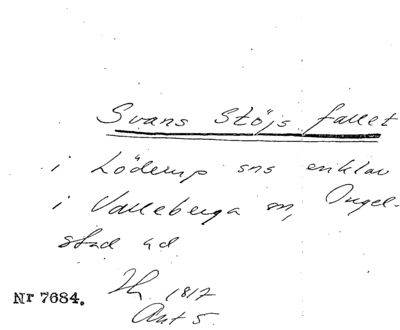 Svans Stöjs fallet
i Löderup sns enklav
i Valleberga sn, Ingel-
stad hd
Nr 7684.
1817
Akt 5.